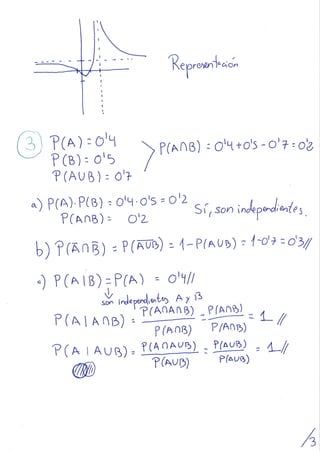 Representación
③ P(A) = 0'4
P(B) = 0'5
P(A∪B) = 0'7
P(A∩B) = 0'4 + 0'5 - 0'7 = 0'2
a) P(A)·P(B) = 0'4·0'5 = 0'2
P(A∩B) = 0'2
Sí, son independientes.
b) P(A̅∩B̅) = P(A̅∪̅B̅) = 1-P(A∪B) = 1-0'7 = 0'3//
c) P(A|B) = P(A) = 0'4//
↓
son independientes A y B
P(A|A∩B) = P(A∩A∩B)/P(A∩B) = P(A∩B)/P(A∩B) = 1//
P(A|A∪B) = P(A∩A∪B)/P(A∪B) = P(A∪B)/P(A∪B) = 1//
/3